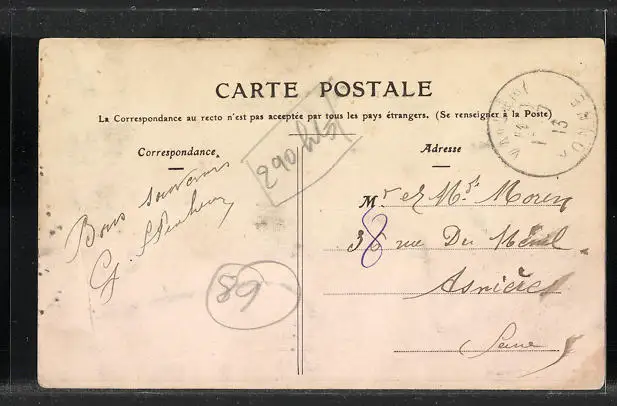 CARTE POSTALE
La Correspondance au recto n'est pas acceptée par tous les pays étrangers. (Se renseigner à la Poste)
Correspondance
Bons souvenirs
290
89
Adresse
Mr et Mde Moren
38 rue Du Ménil
Asnières
Seine
YONNE
13